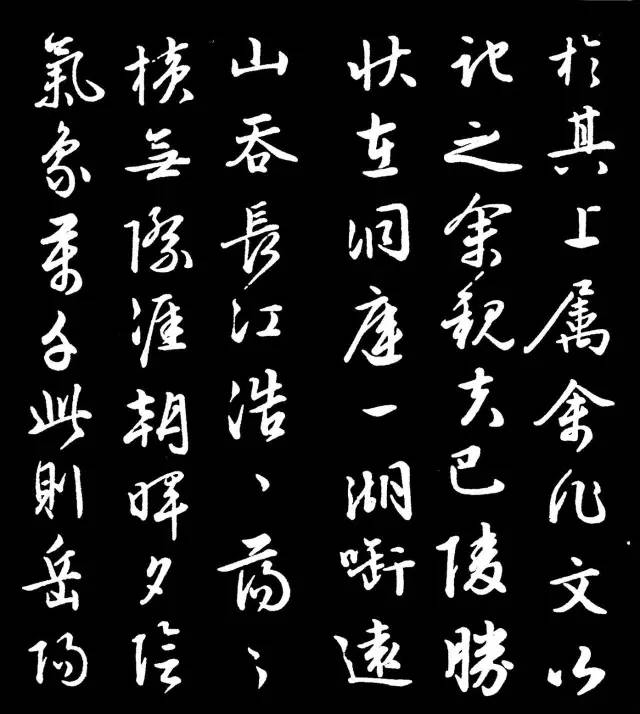 於其上属余作文以
记之余观夫巴陵勝
状在洞庭一湖衔遠
山吞長江浩〻蕩〻
横無際涯朝暉夕陰
氣象萬千此則岳陽